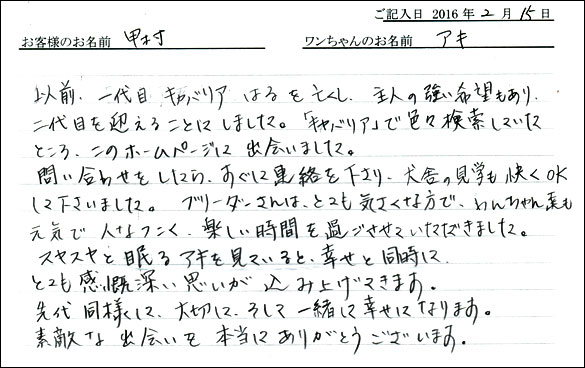 ご記入日 2016年2月15日
お客様のお名前 甲村 ワンちゃんのお名前 アキ
以前、一代目キャバリア はるを亡くし、主人の強い希望もあり、
二代目を迎えることにしました。「キャバリア」で色々検索していた
ところ、このホームページに出会いました。
問い合わせをしたら、すぐに連絡を下さり、犬舎の見学も快くOK
して下さいました。 ブリーダーさんは、とても気さくな方で、わんちゃん達も
元気で人なつこく、楽しい時間を過ごさせていただきました。
スヤスヤと眠るアキを見ていると、幸せと同時に
とても感慨深い思いが込み上げてきます。
先代同様に、大切に、そして一緒に幸せになります。
素敵な出会いを本当にありがとうございます。